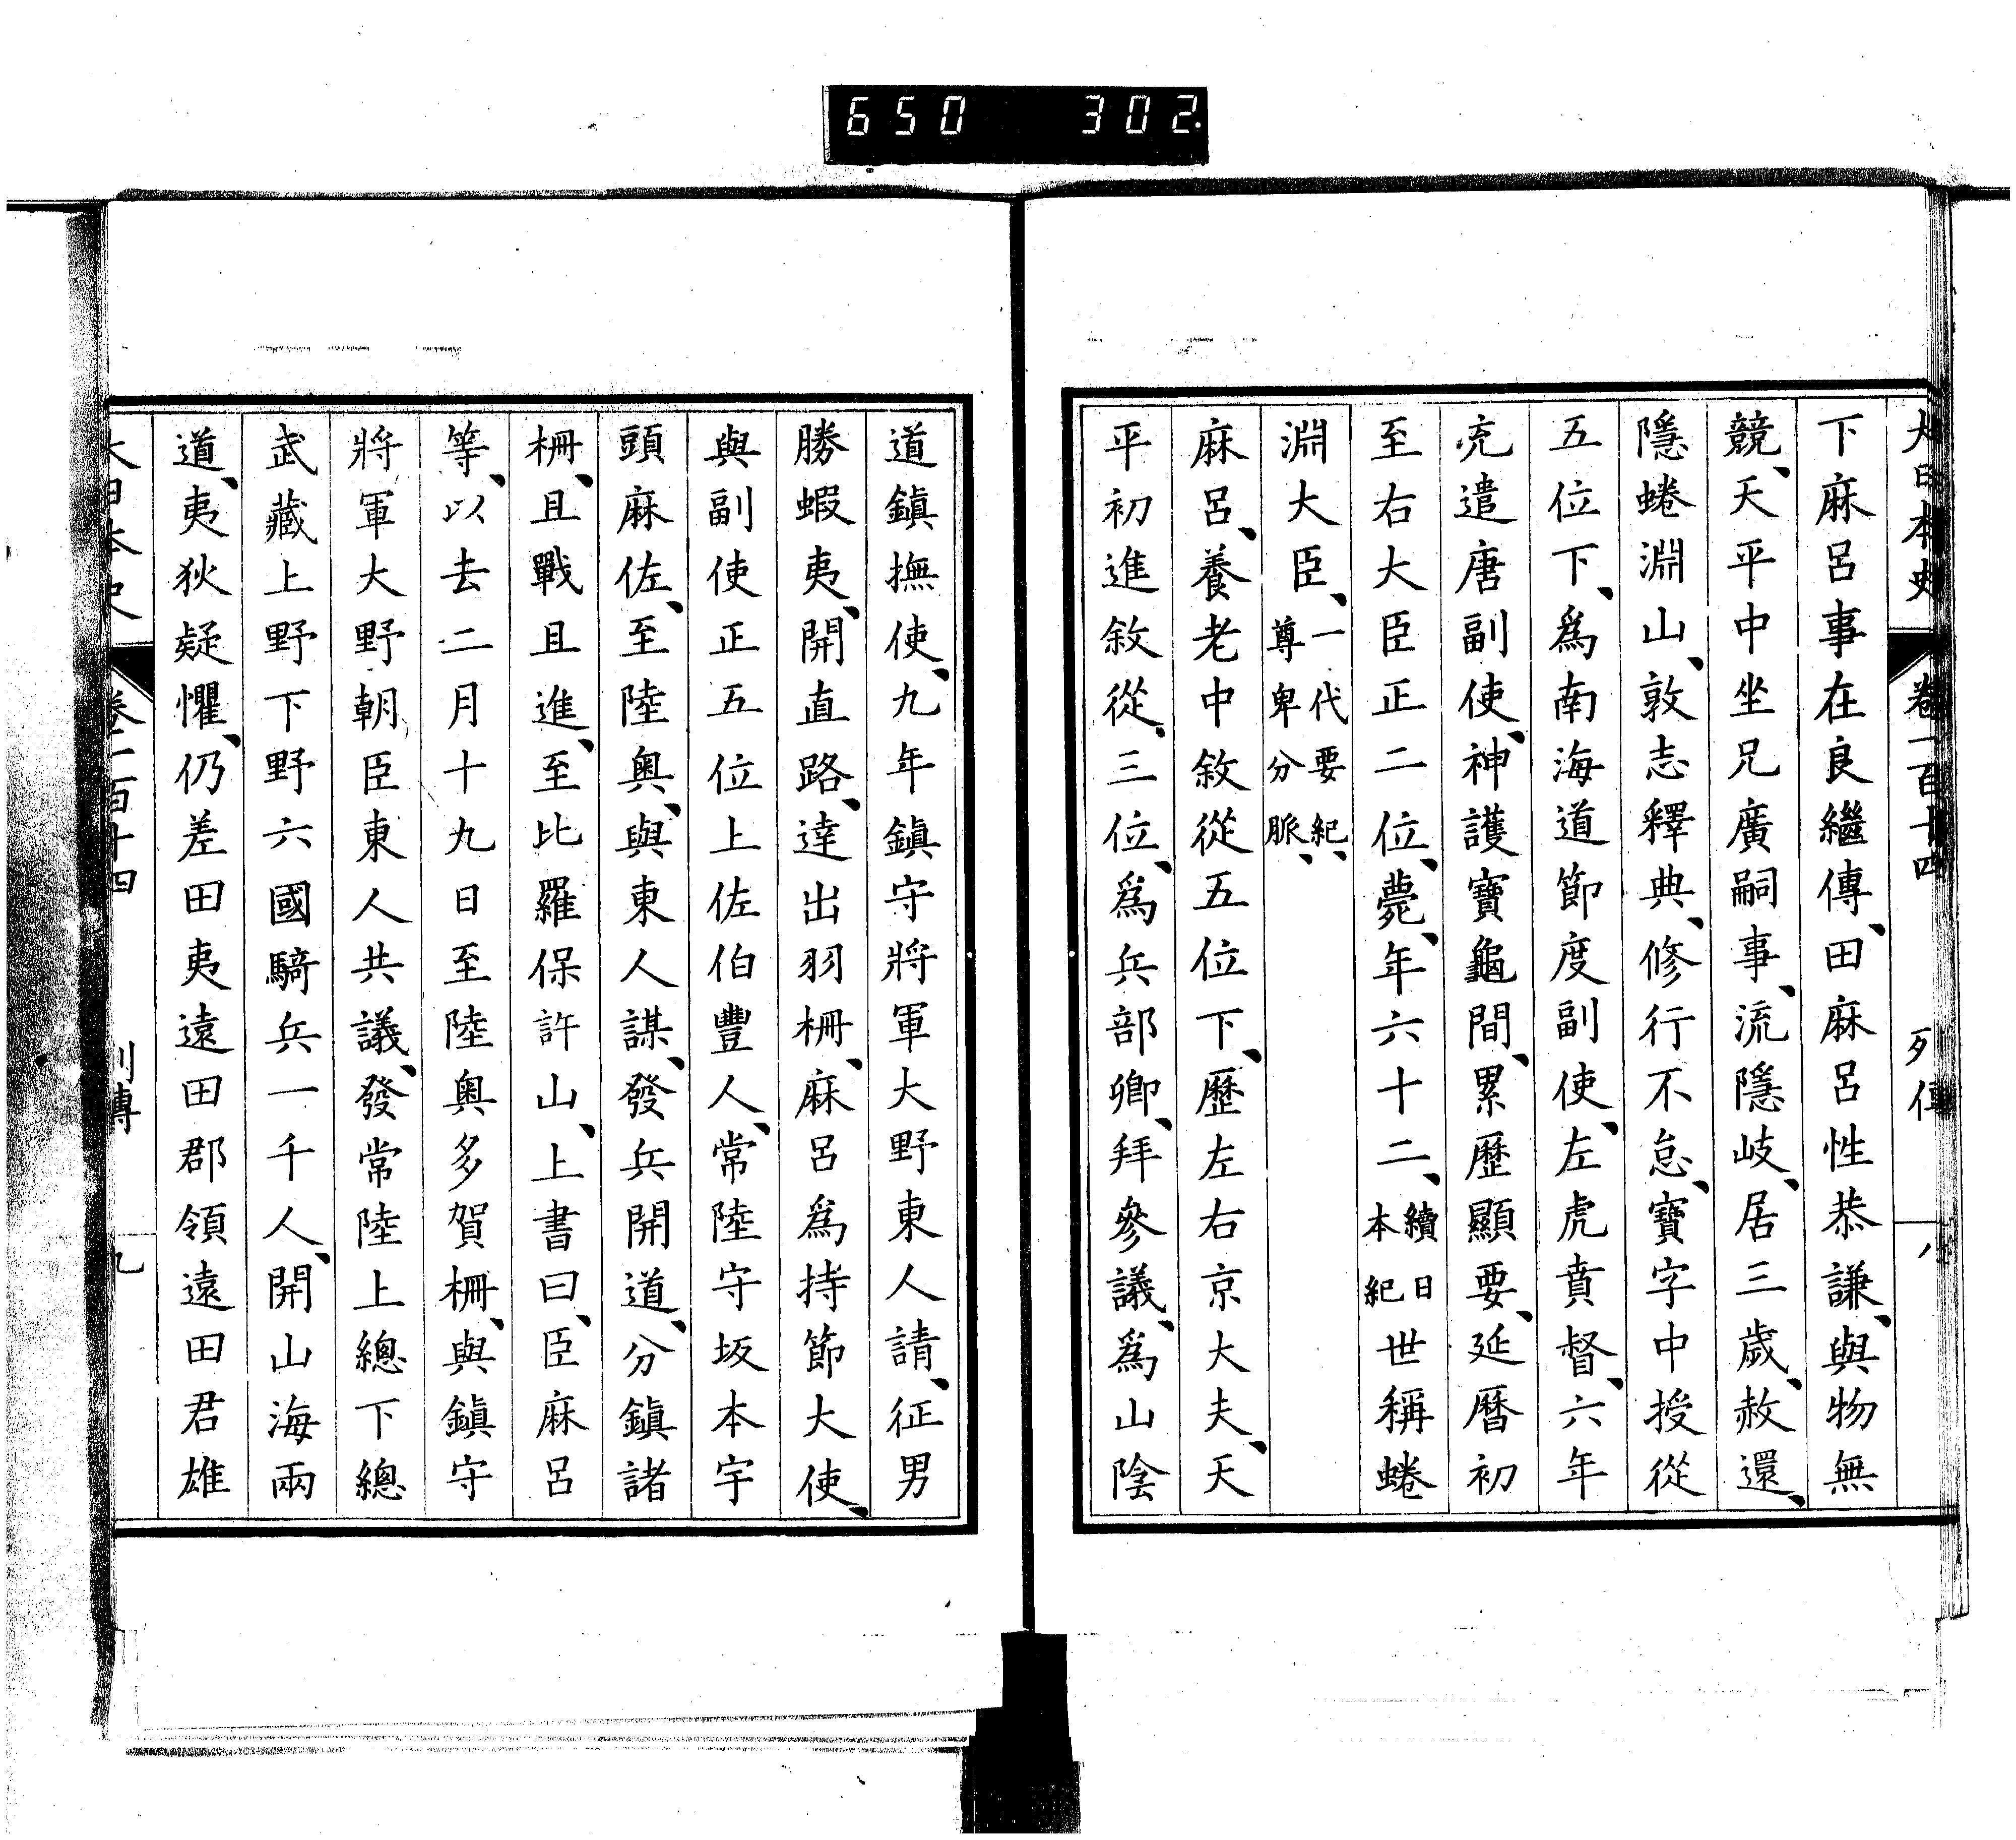 650 302
大日本史 卷一百十四 列傳 八
下麻呂事在良繼傳、田麻呂性恭謙、與物無
競、天平中坐兄廣嗣事、流隱岐、居三歲、赦還、
隱蜷淵山、敦志釋典、修行不怠、寶字中授從
五位下、爲南海道節度副使、左虎賁督、六年
充遣唐副使、神護寶龜間、累歷顯要、延曆初
至右大臣正二位、薨、年六十二、續日本紀世稱蜷
淵大臣、一代要紀、尊卑分脈、
麻呂、養老中敘從五位下、歷左右京大夫、天
平初進敘從三位、爲兵部卿、拜參議、爲山陰
道鎮撫使、九年鎮守將軍大野東人請、征男
勝蝦夷、開直路、達出羽柵、麻呂爲持節大使、
與副使正五位上佐伯豐人、常陸守坂本宇
頭麻佐、至陸奧、與東人謀、發兵開道、分鎮諸
柵、且戰且進、至比羅保許山、上書曰、臣麻呂
等、以去二月十九日至陸奧多賀柵、與鎮守
將軍大野朝臣東人共議、發常陸上總下總
武藏上野下野六國騎兵一千人、開山海兩
道、夷狄疑懼、仍差田夷遠田郡領遠田君雄
大日本史 卷一百十四 列傳 九